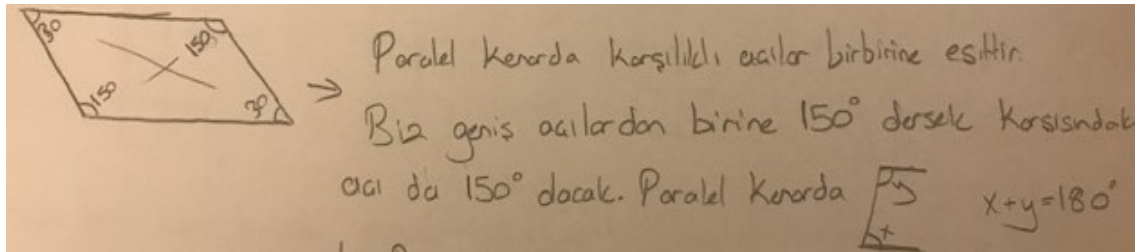 30
150
150
30
→ Paralel kenarda karşılıklı açılar birbirine eşittir.
Biz geniş açılardan birine 150° dersek karşısındaki
açı da 150° olacak. Paralel kenarda y x x+y=180°